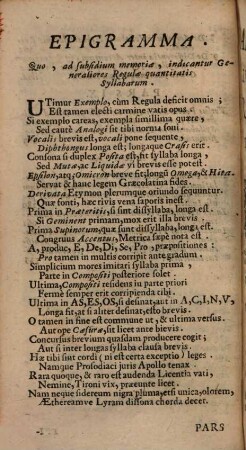 EPIGRAMMA.
Quo, ad subsidium memoriæ, indicantur Ge-
neraliores Regulæ quantitatis
Syllabarum.
UTimur Exemplo, cùm Regula deficit omnis;
Est tamen electi carmine vatis opus.
Si exemplo careas, exempla simillima quære,
Sed cautè Analogi sit tibi norma soni.
Vocalis brevis est, vocali pone sequente,
Diphthongus longa est; longaque Crasis erit.
Consona si duplex Posita est, fit syllaba longa,
Sed Mutæ, ac Liquidæ vi brevis esse potest.
Epsilon, atq; Omicron breve fit; longũ Omega, & Hita.
Servat & hanc legem Græcolatina fides.
Derivata Etymon plerumque oriundo sequuntur.
Quæ fonti, hæc rivis vena saporis inest.
Prima in Præteritis, si sunt dissyllaba, longa est.
Si Geminent primam, mox erit illa brevis.
Prima Supinorum, quæ sunt dissyllaba, longa est.
Congruus Accentus, Metrica sæpè nota est.
A, produc, E, De, Di, Se, Pro, præpositiones:
Pro tamen in multis corripit ante gradum.
Simplicium mores imitari syllaba prima,
Parte in Compositi posteriore solet.
Ultima, Compositi residens in parte priori
Fermè semper erit corripienda tibi.
Ultima in AS, ES, OS, si desinat, aut in A, C, I, N, V,
Longa fit, at si aliter desinat, esto brevis.
O tamen in fine est commune ut, & ultima versus.
Aut ope Cæsuræ, sit licet ante bievis.
Concursus brevium quasdam producere cogit;
Aut si inter longas syllaba clausa brevis.
Hæ tibi sint cordi (ni est certa exceptio) leges.
Namque Prosodiaci juris Apollo tenax.
Rara quoque, & raro est audenda Licentia vati,
Nemine, Tironi vix, præeunte licet.
Nam neque sidereum nigra pluma, etsi unica, olorem,
Æthereamve Lyram dissona chorda decet.
PARS